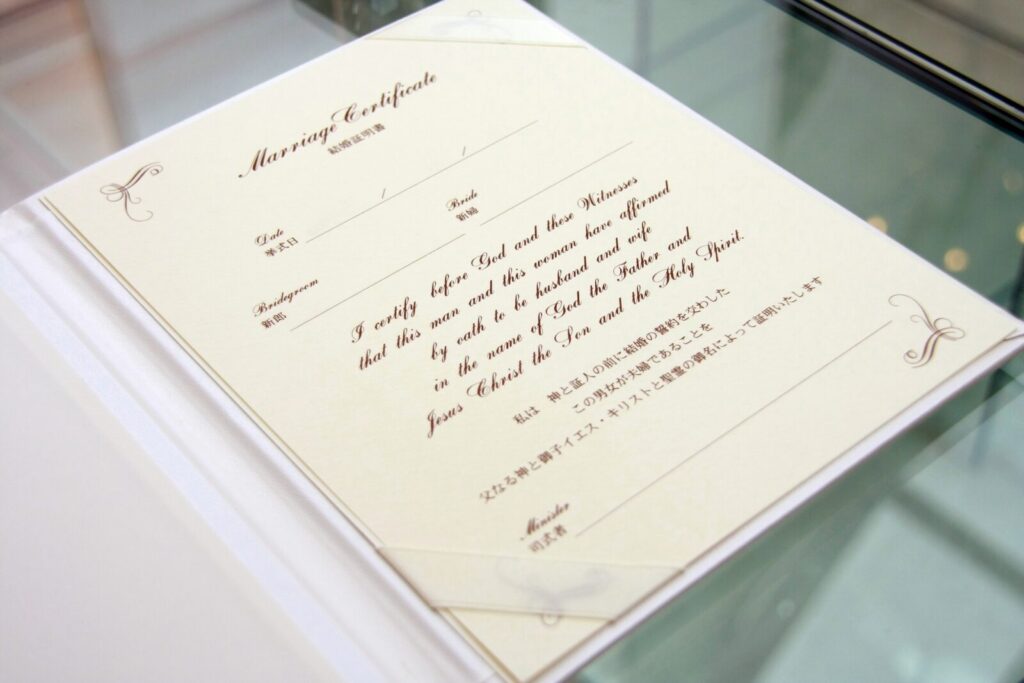 Marriage Certificate
結婚証明書
Date / /
挙式日
Bridegroom
新郎
Bride
新婦
I certify before God and these Witnesses
that this man and this woman have affirmed
by oath to be husband and wife
in the name of God the Father and
Jesus Christ the Son and the Holy Spirit.
私は 神と証人の前に結婚の誓約を交わした
この男女が夫婦であることを
父なる神と御子イエス・キリストと聖霊の御名によって証明いたします
Minister
司式者